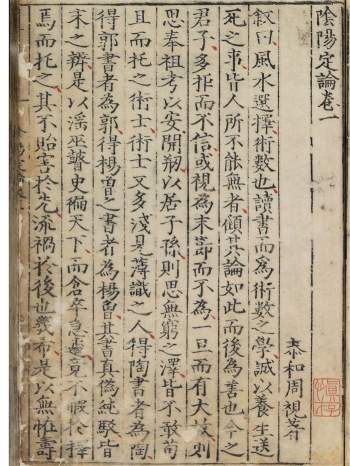 陰陽定論卷一
泰和周視著
叙曰風水選擇術數也讀書而為術數之學誠以養生送
死之事皆人所不能無者顧其論如此而後為善也今之
君子多拒而不信或視為末節而不為一旦而有大故則
思奉祖考以安開翔以居子孫則思無窮之澤皆不敢苟
且而托之術士術士又多淺見薄識之人得陶書者為陶
得郭書者為郭得楊曾之書者為楊曾其書真偽純駁皆
未之辨是以滛巫瞽史徧天下而倉卒急遽竟不暇於擇
焉而托之其不貽害於先流禍於後也幾希是以無恠壽